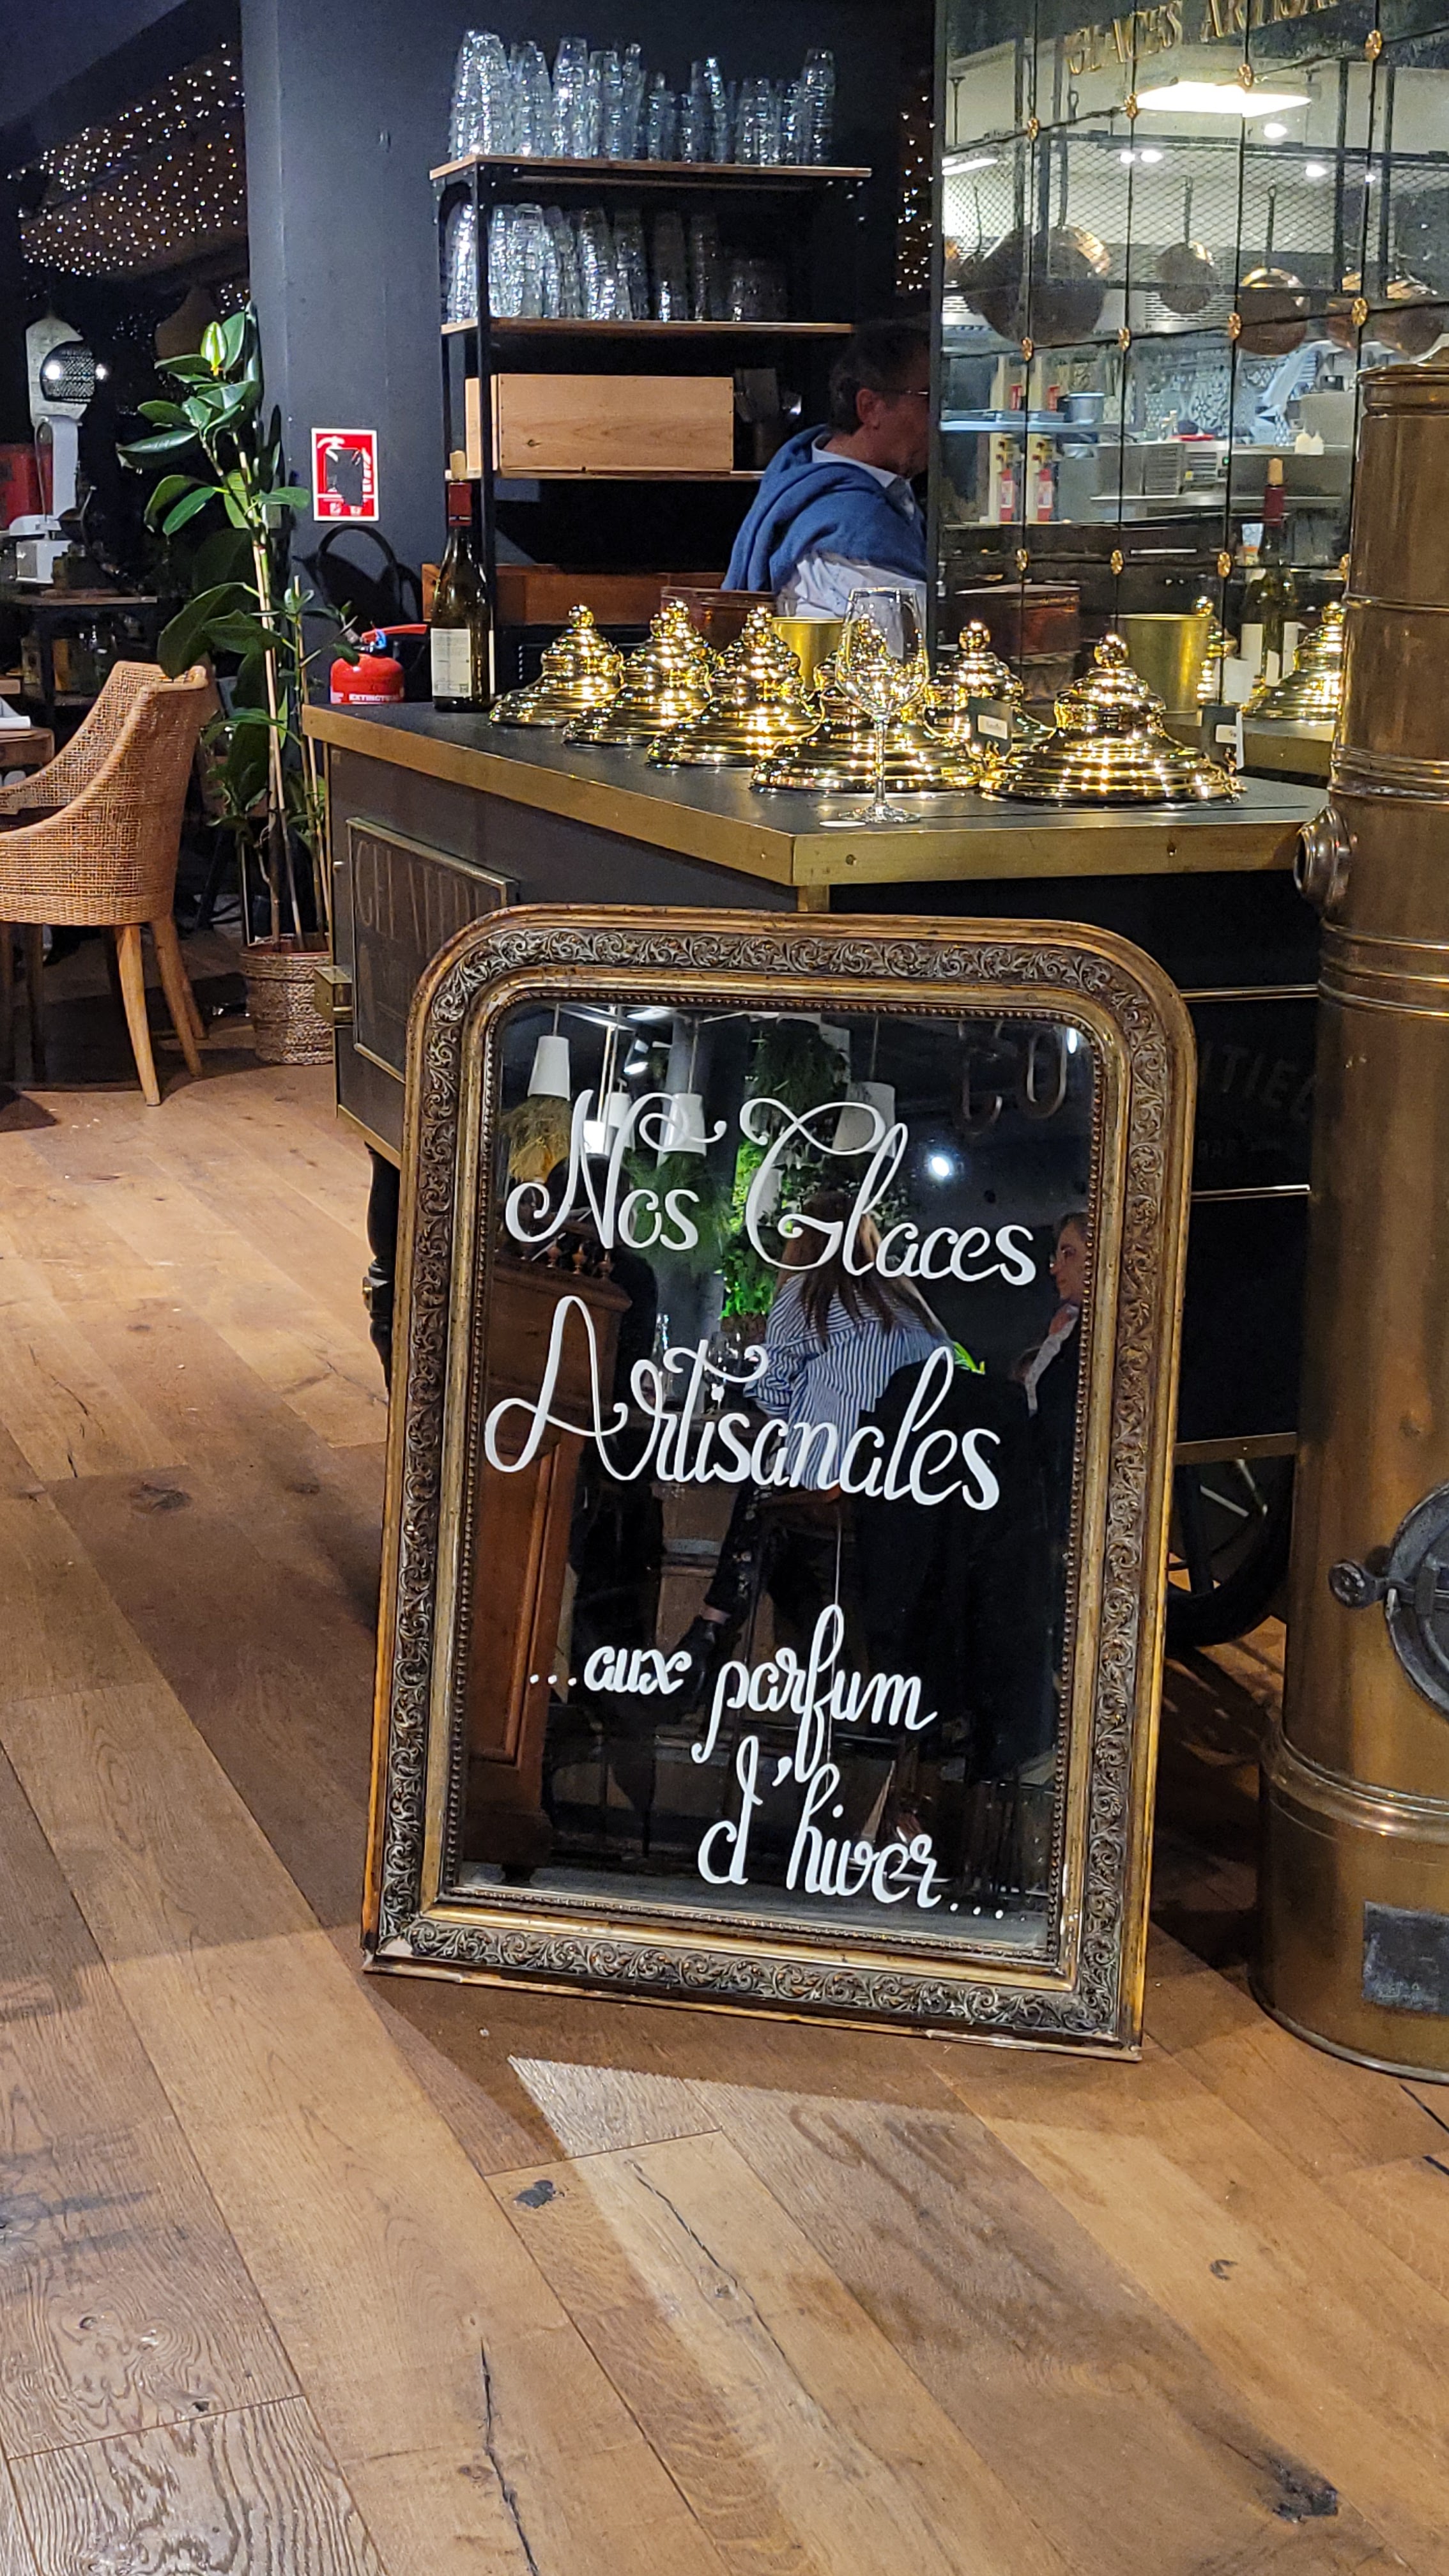 GLACES ARTISA
EXTINCTEUR
Nos Glaces
Artisanales
...aux parfum
d'hivèr...